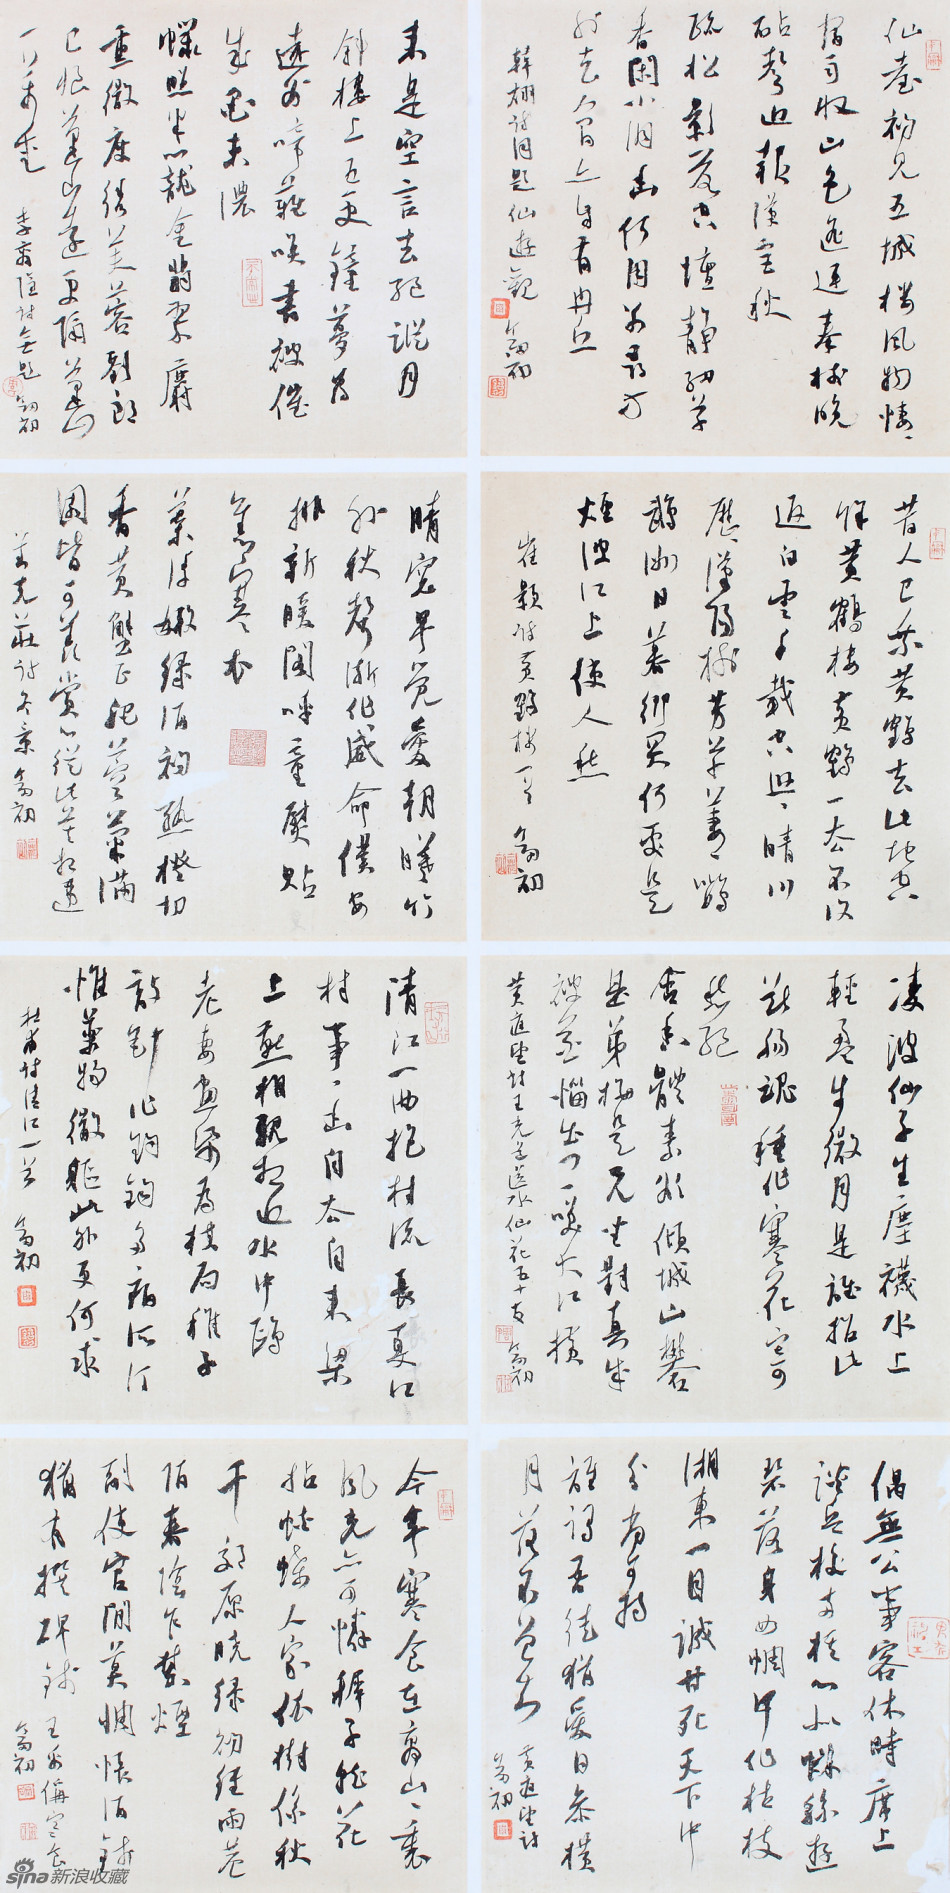 仙臺初見五城樓風物悽悽
宿雨收山色遙連秦樹晚
砧聲近報漢宮秋
疏松影落空壇靜細草
香閑小洞幽何用別尋方
外去人間亦自有丹丘
韓翃詩同題仙遊觀 翕初
來是空言去絕蹤月
斜樓上五更鐘夢為
遠別啼難喚書被催
成墨未濃
蠟照半籠金翡翠麝
熏微度繡芙蓉劉郎
已恨蓬山遠更隔蓬山
一万重 李商隱詩無題 翕初
昔人已乘黃鶴去此地空
餘黃鶴樓黃鶴一去不復
返白雲千載空悠悠晴川
歷歷漢陽樹芳草萋萋鸚
鵡洲日暮鄉關何處是
煙波江上使人愁
崔顥詩黃鶴樓一首 翕初
晴窗早覺愛朝曦竹
外秋聲漸作威命僕安
排新暖閣呼童熨貼
舊寒衣
葉浮嫩綠酒初熟橙切
香黃蟹正肥蓉菊滿
園皆可羨賞心從此莫相違
劉克莊詩冬景 翕初
凌波仙子生塵襪水上
輕盈步微月是誰招此
斷腸魂種作寒花寄
愁絕
含香體素欲傾城山礬
是弟梅是兄坐對真成
被花惱出門一笑大江橫
黃庭堅詩王充道送水仙花五十支 翕初
清江一曲抱村流長夏江
村事事幽自去自來梁
上燕相親相近水中鷗
老妻畫紙為棋局稚子
敲針作釣鉤多病所須
惟藥物微軀此外更何求
杜甫詩清江一首 翕初
偶無公事客休時席上
談兵校兩棋心似蛛絲遊
碧落身如蜩甲化枯枝
湘東一目誠甘死天下中
分尚可持
誰謂吾徒猶愛日參橫
月落不曾知 黃庭堅詩 翕初
今年寒食在商山山裏
風光亦可憐稚子就花
拈蛺蝶人家依樹係秋
千郊原曉綠初經雨巷
陌春陰乍禁煙
副使官閒莫惆悵酒錢
猶有撰碑錢 王禹偁寒食 翕初
sina新浪收藏